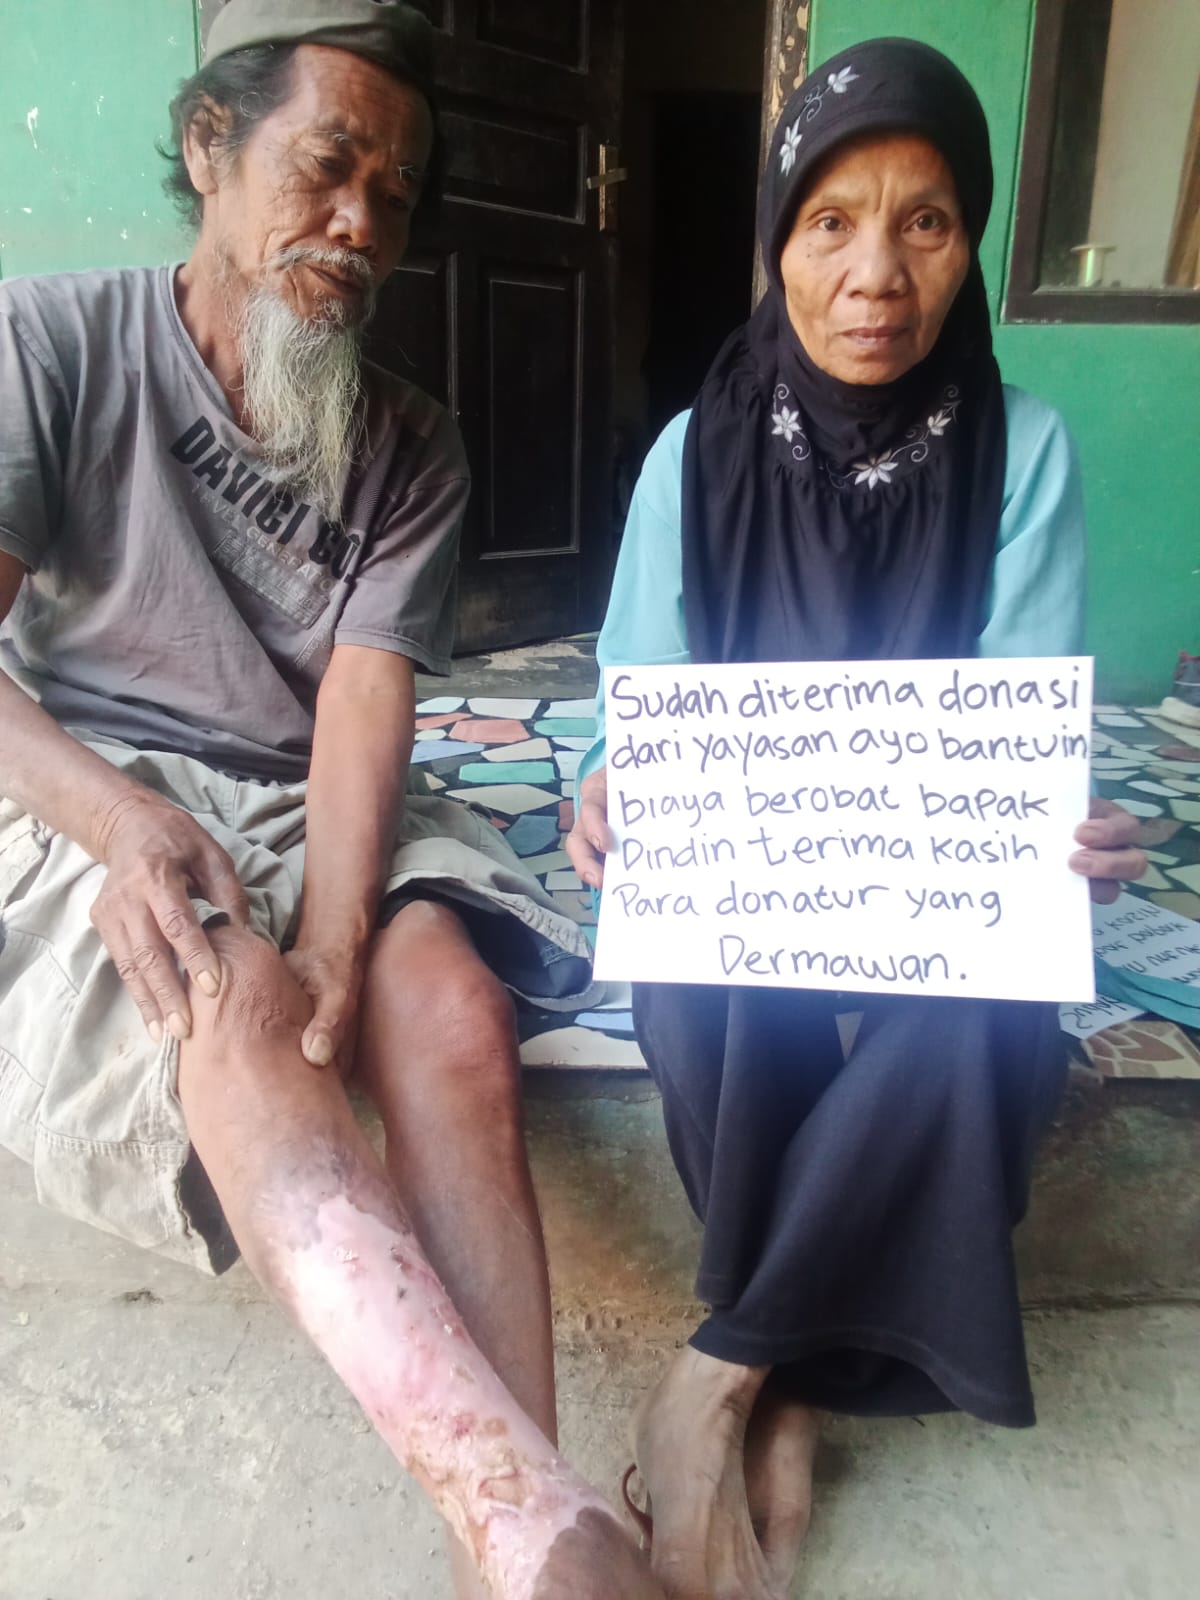 DAVICI CO
Sudah diterima donasi
dari yayasan ayo bantuin
biaya berobat bapak
Dindin terima kasih
Para donatur yang
Dermawan.